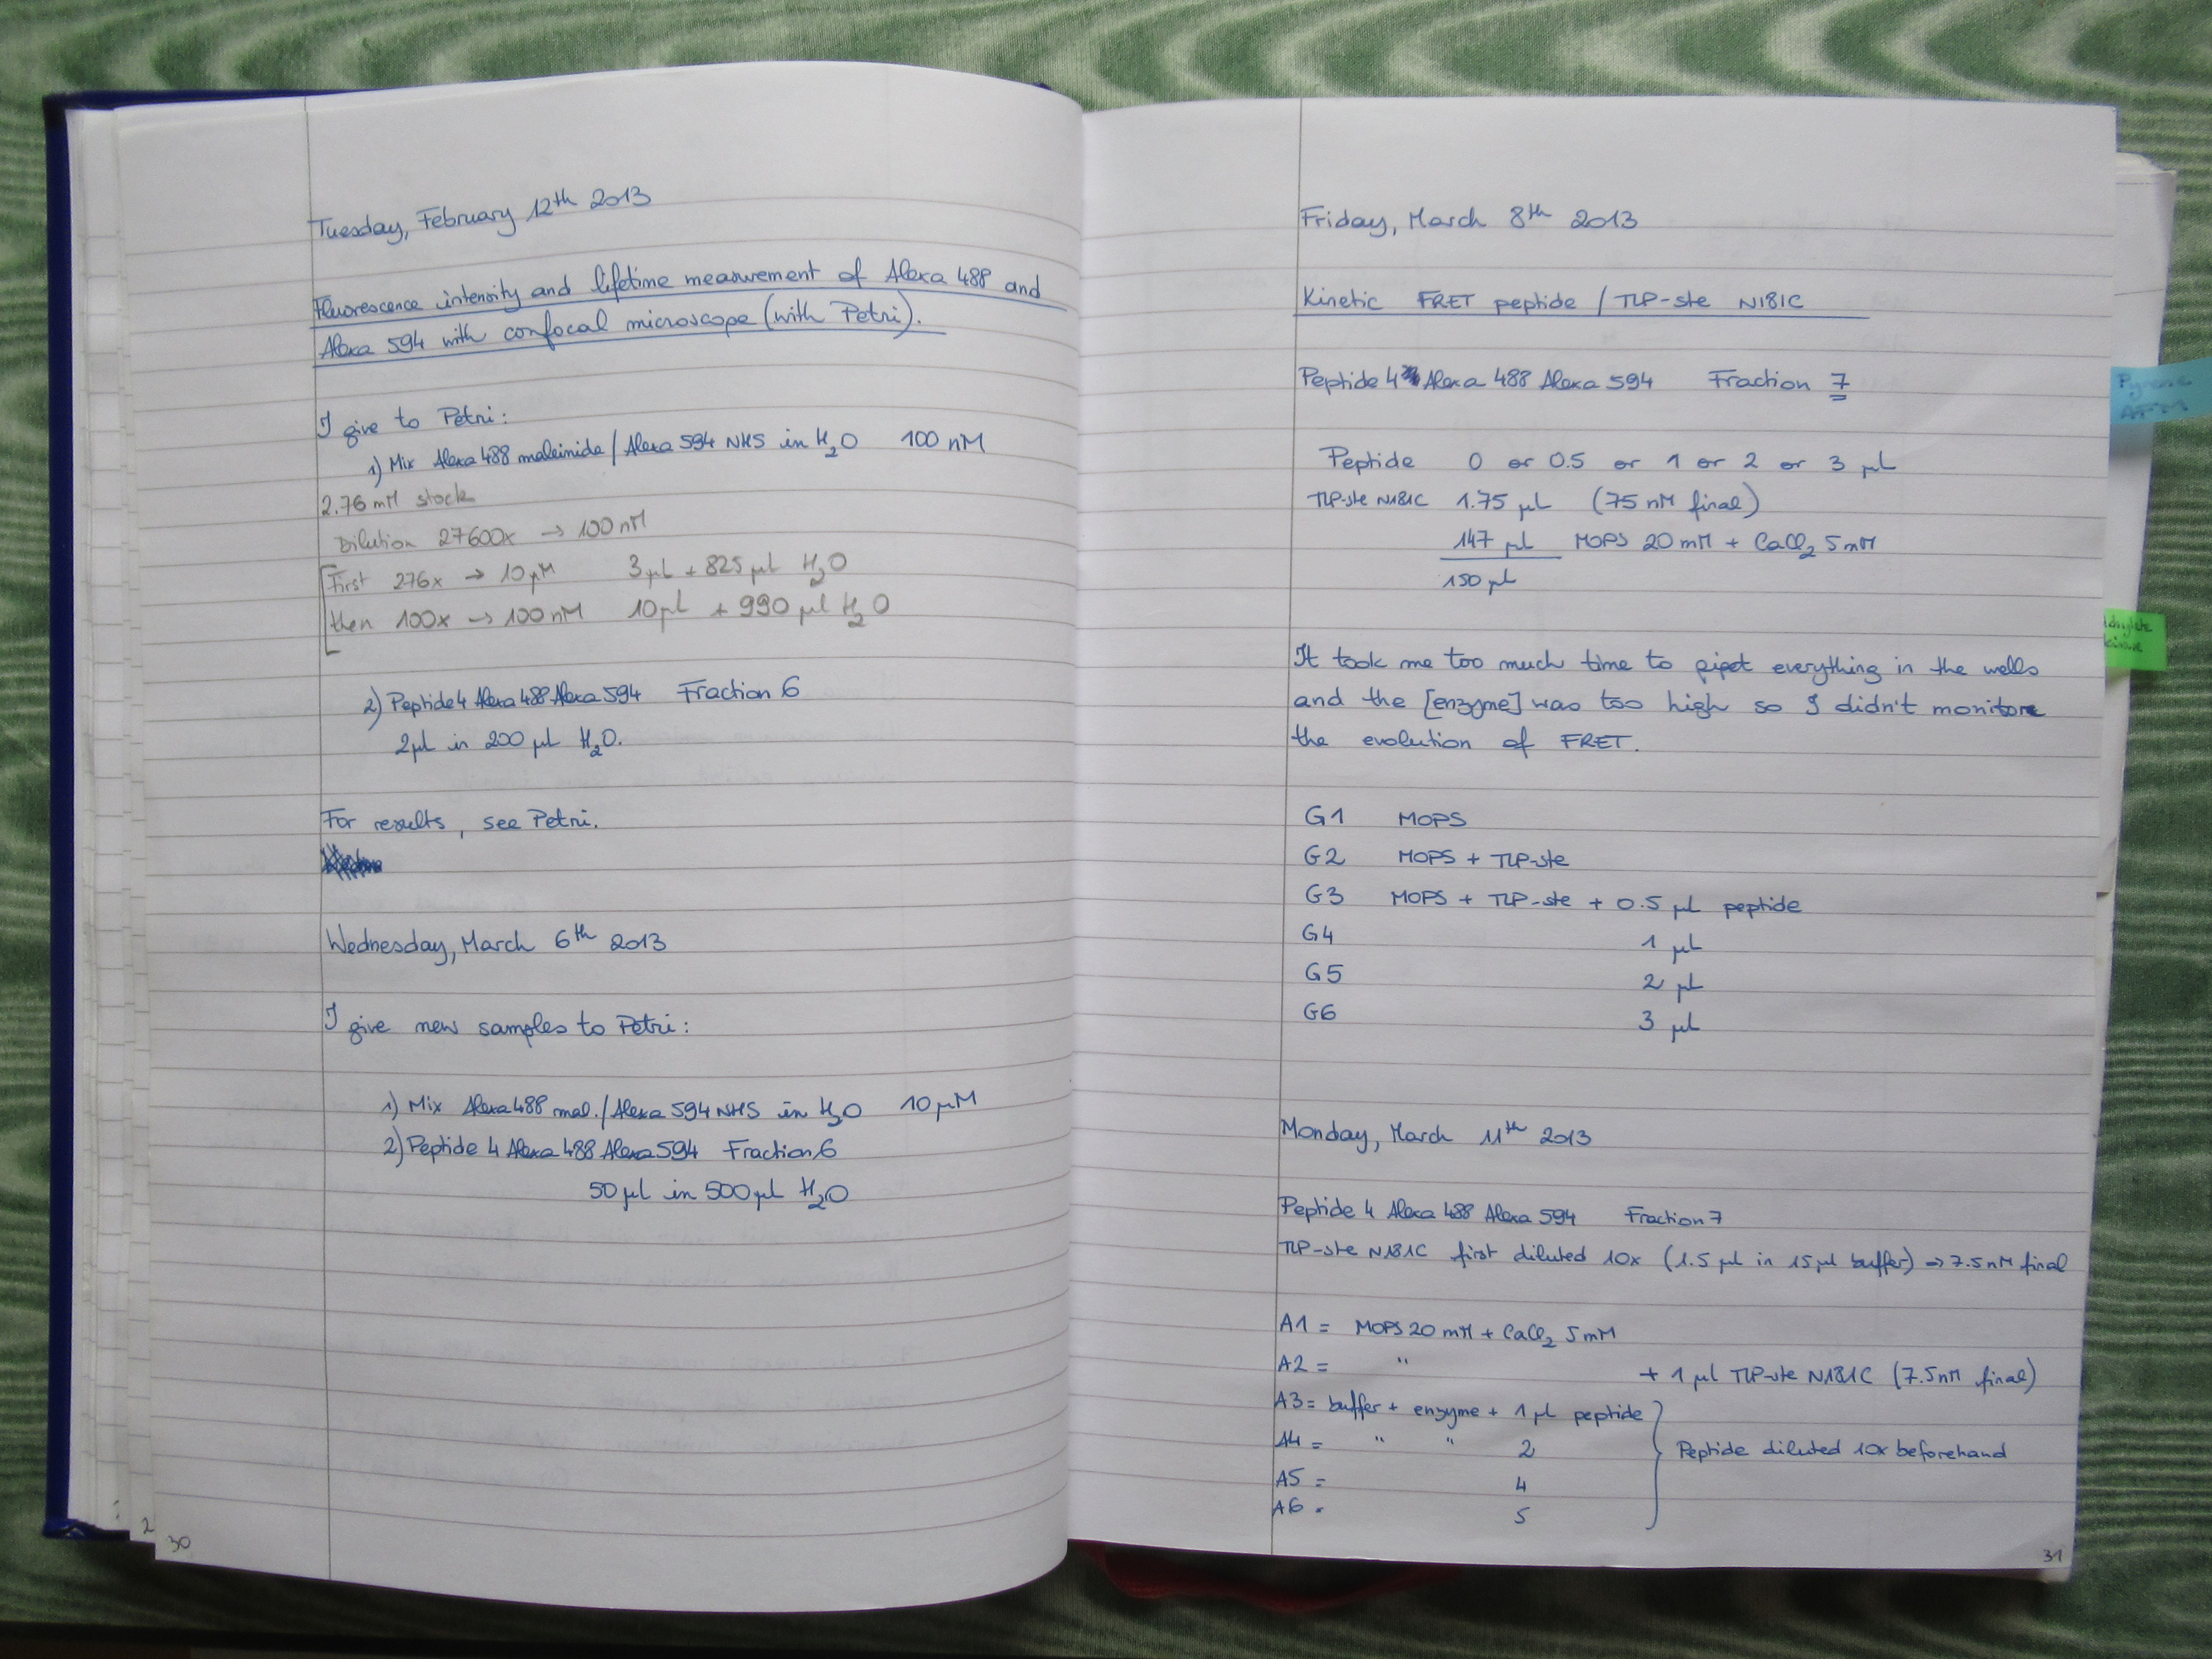 Tuesday, February 12th 2013
Fluorescence intensity and lifetime measurement of Alexa 488 and
Alexa 594 with confocal microscope (with Petri).
I give to Petri:
1) Mix Alexa 488 maleinide / Alexa 594 NHS in H2O 100 nM
2.76 mM stock
Dilution 27600x → 100 nM
First 276x → 10 µM 3 µL + 825 µL H2O
then 100x → 100 nM 10 µL + 990 µL H2O
2) Peptide 4 Alexa 488 Alexa 594 Fraction 6
2 µL in 200 µL H2O.
For results, see Petri.
Wednesday, March 6th 2013
I give new samples to Petri:
1) Mix Alexa 488 mal. / Alexa 594 NHS in H2O 10 µM
2) Peptide 4 Alexa 488 Alexa 594 Fraction 6
50 µL in 500 µL H2O
2
30
Friday, March 8th 2013
Kinetic FRET peptide / TLP-ste N181C
Peptide 4 Alexa 488 Alexa 594 Fraction 7
Peptide 0 or 0.5 or 1 or 2 or 3 µL
TLP-ste N181C 1.75 µL (75 nM final)
147 µL MOPS 20 mM + CaCl2 5 mM
150 µL
It took me too much time to pipet everything in the wells
and the [enzyme] was too high so I didn't monitore
the evolution of FRET.
G1 MOPS
G2 MOPS + TLP-ste
G3 MOPS + TLP-ste + 0.5 µL peptide
G4 1 µL
G5 2 µL
G6 3 µL
Monday, March 11th 2013
Peptide 4 Alexa 488 Alexa 594 Fraction 7
TLP-ste N181C first diluted 10x (1.5 µL in 15 µL buffer) → 7.5 nM final
A1 = MOPS 20 mM + CaCl2 5 mM
A2 = " + 1 µL TLP-ste N181C (7.5 nM final)
A3 = buffer + enzyme + 1 µL peptide
A4 = " " 2 Peptide diluted 10x beforehand
A5 = 4
A6 = 5
31